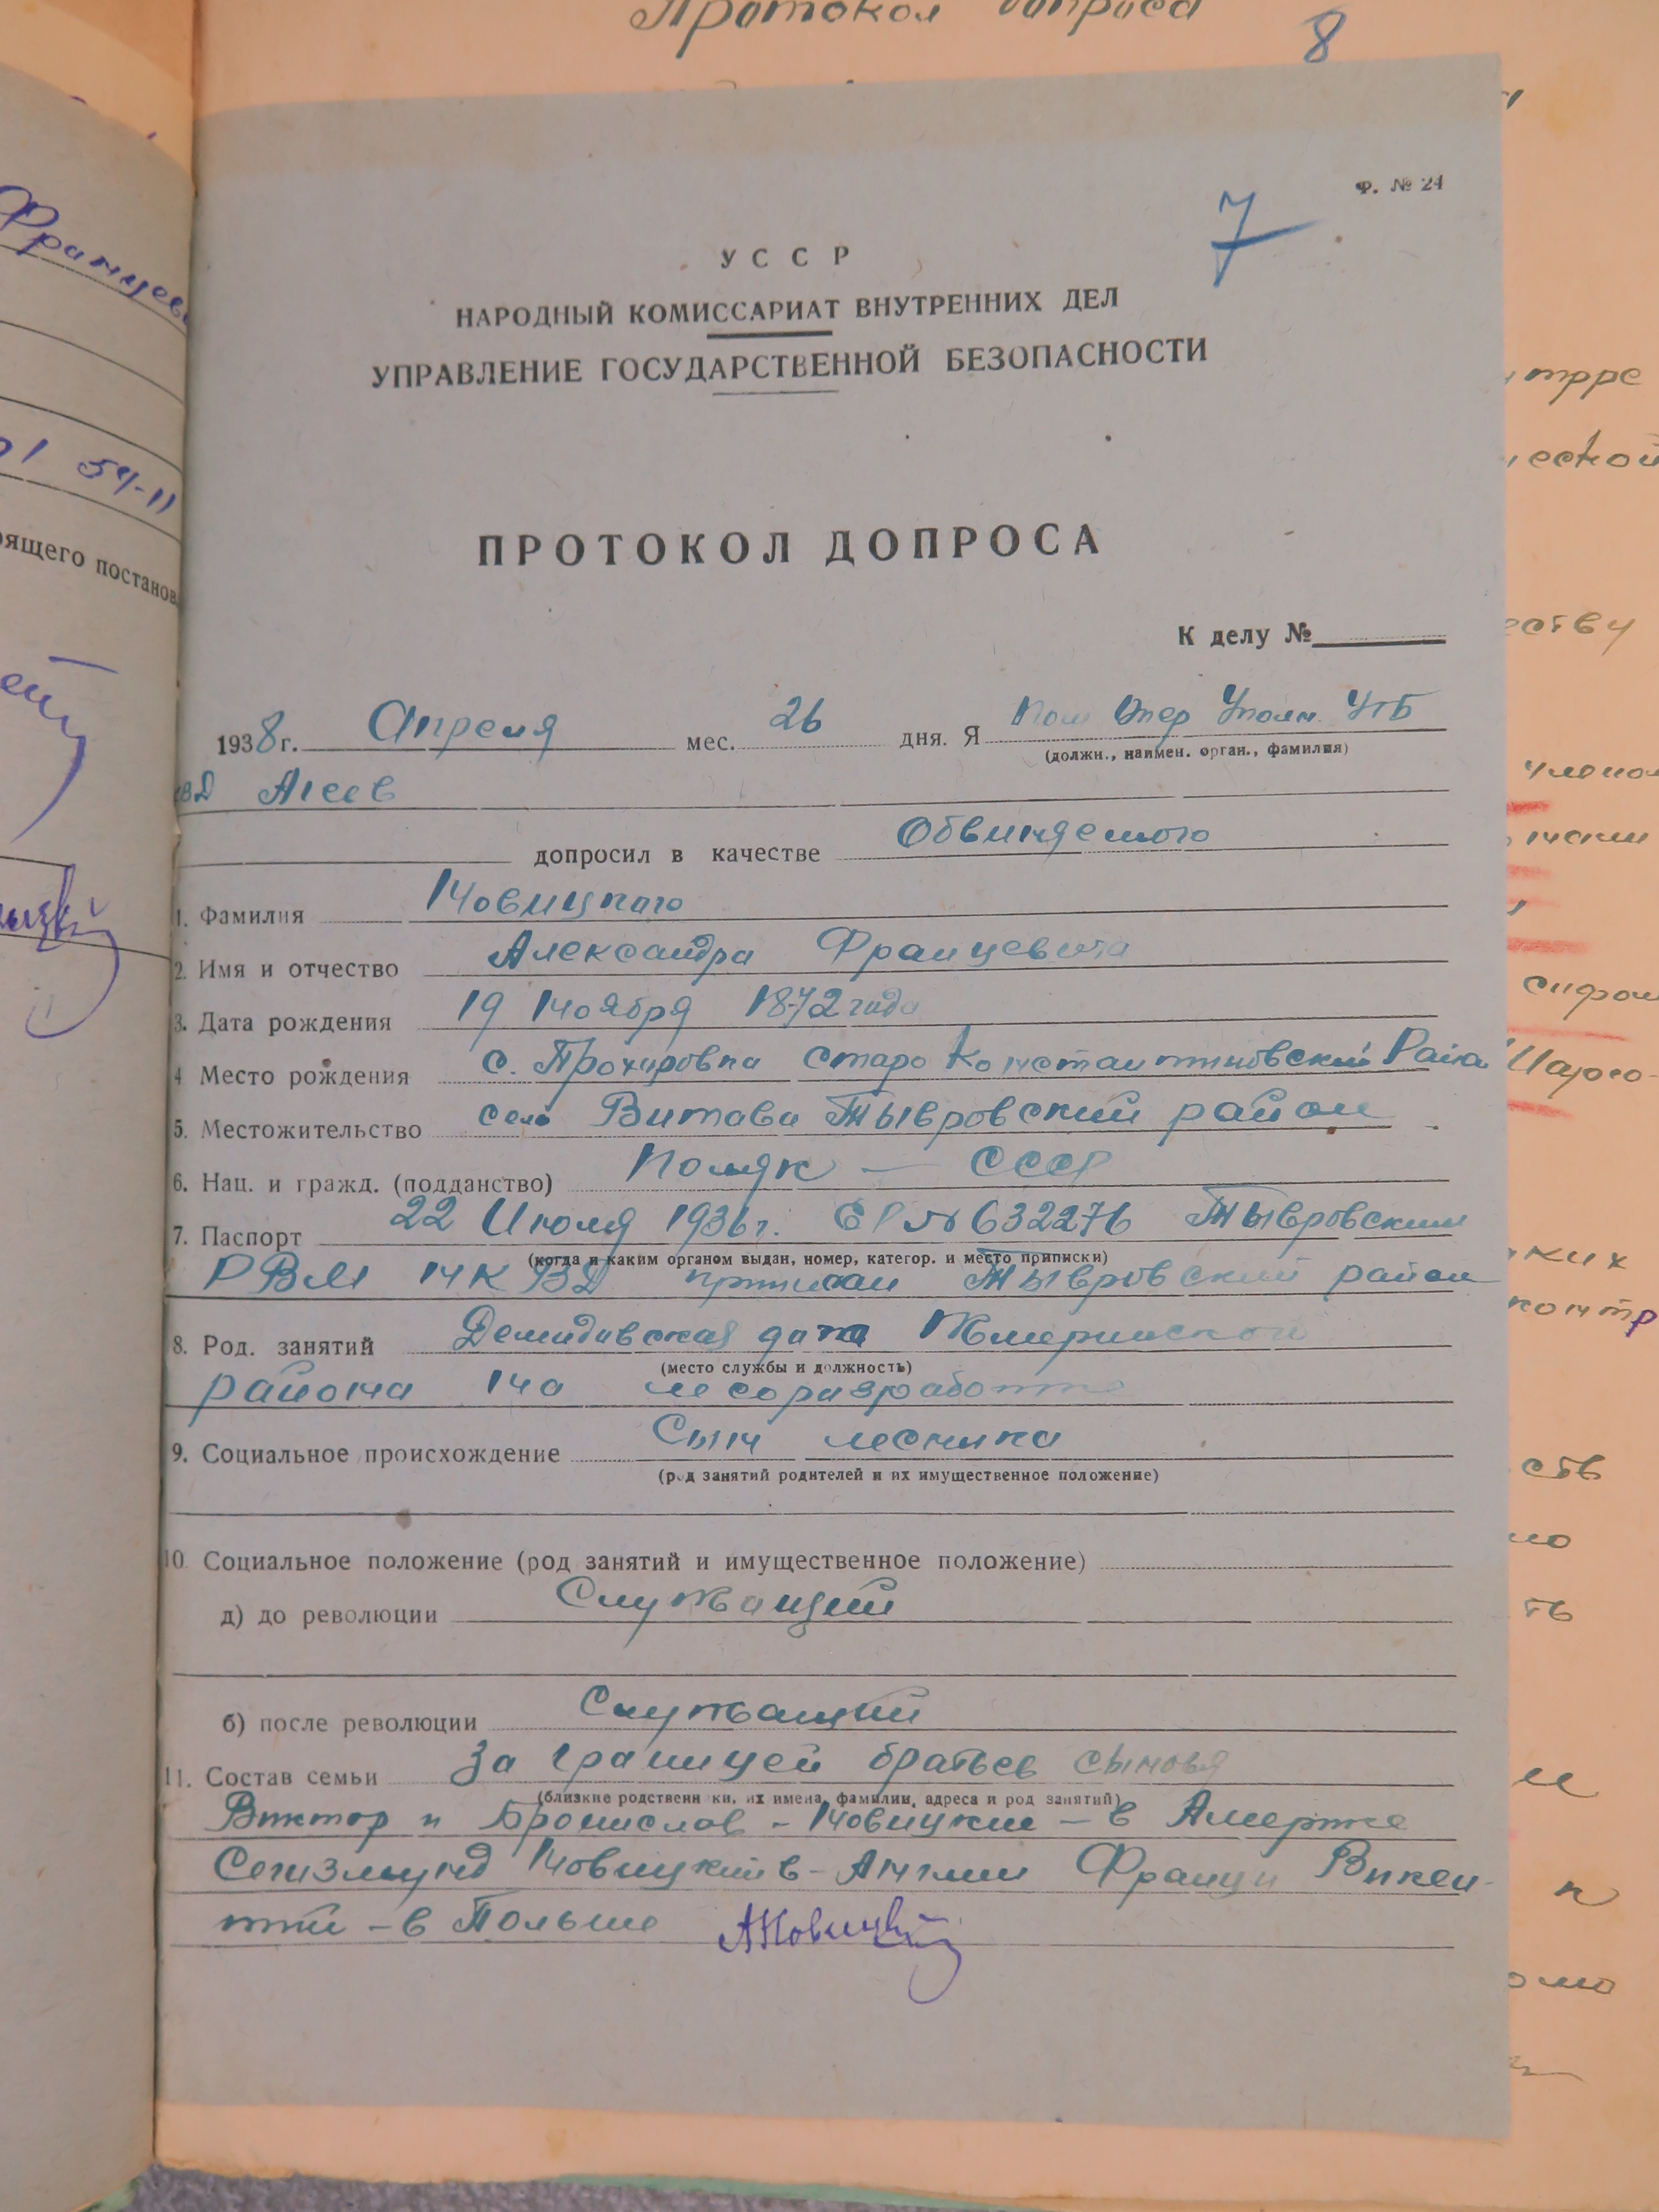 Протокол допроса
8
Ф. № 24
7
УССР
НАРОДНЫЙ КОМИССАРИАТ ВНУТРЕННИХ ДЕЛ
УПРАВЛЕНИЕ ГОСУДАРСТВЕННОЙ БЕЗОПАСНОСТИ
ПРОТОКОЛ ДОПРОСА
К делу №
1938 г. Апреля мес. 26 дня. Я Пом Опер Уполн. УГБ
(должн., наимен. орган., фамилия)
Агеев
допросил в качестве Обвиняемого
1. Фамилия Новицкого
2. Имя и отчество Александра Францевича
3. Дата рождения 19 ноября 1872 года
4 Место рождения с. Прохировка Старо Константиновский Район
5. Местожительство село Витава Тывровский район
6. Нац. и гражд. (подданство) Поляк — СССР
7. Паспорт 22 Июля 1936 г. № 632276 Тывровским
(когда и каким органом выдан, номер, категор. и место приписки)
РВМ НКВД приписан Тывровский район
8. Род. занятий Демидовская дача Жмеринского
(место службы и должность)
района на лесоразработке
9. Социальное происхождение Сын лесника
(род занятий родителей и их имущественное положение)
10 Социальное положение (род занятий и имущественное положение)
д) до революции Служащий
б) после революции Служащий
11. Состав семьи За границей братьев сыновя
(близкие родственники, их имена, фамилии, адреса и род занятий)
Виктор и Бронислав - Новицкие - в Америке
Сегизмунд Новицкий в - Англии Франц и Викен-
тий - в Польше АНовицкий
Францев
54-11
оящего постанов